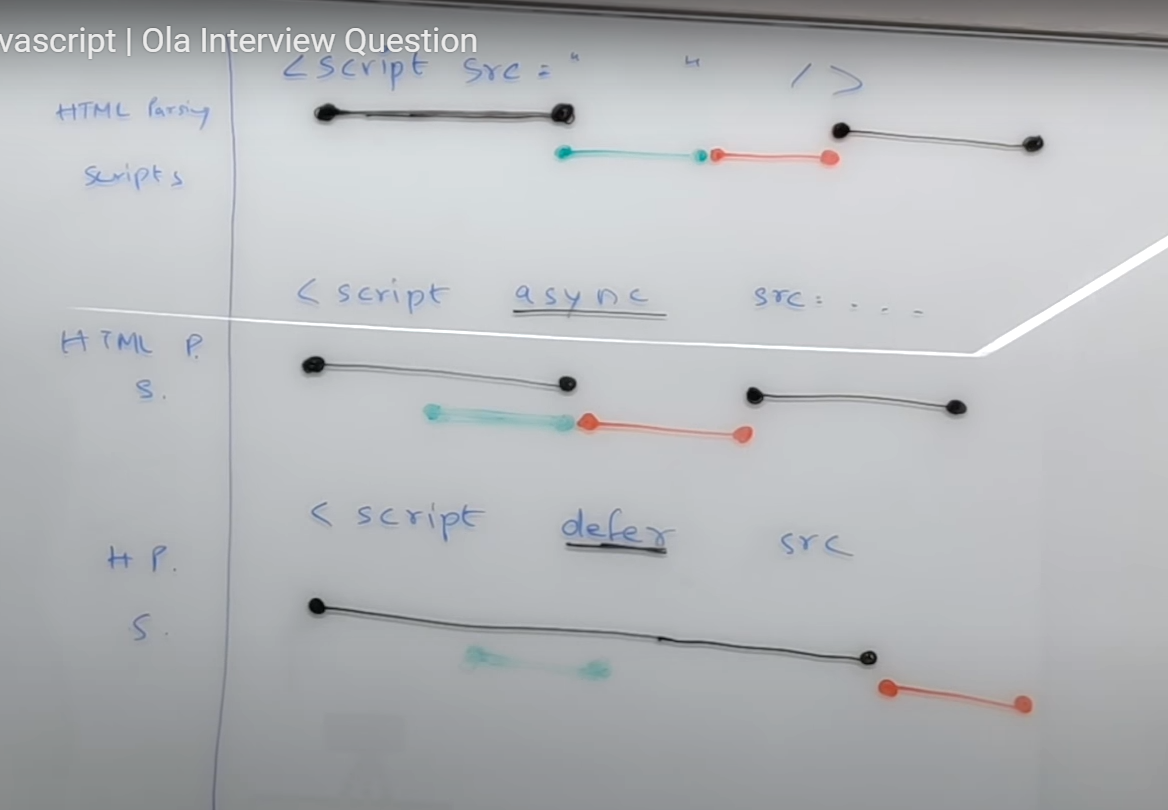 vascript | Ola Interview Question
<script src = " " />
HTML Parsing
Scripts
< script async src: . . . .
HTML P.
S.
< script defer src
H P.
S.